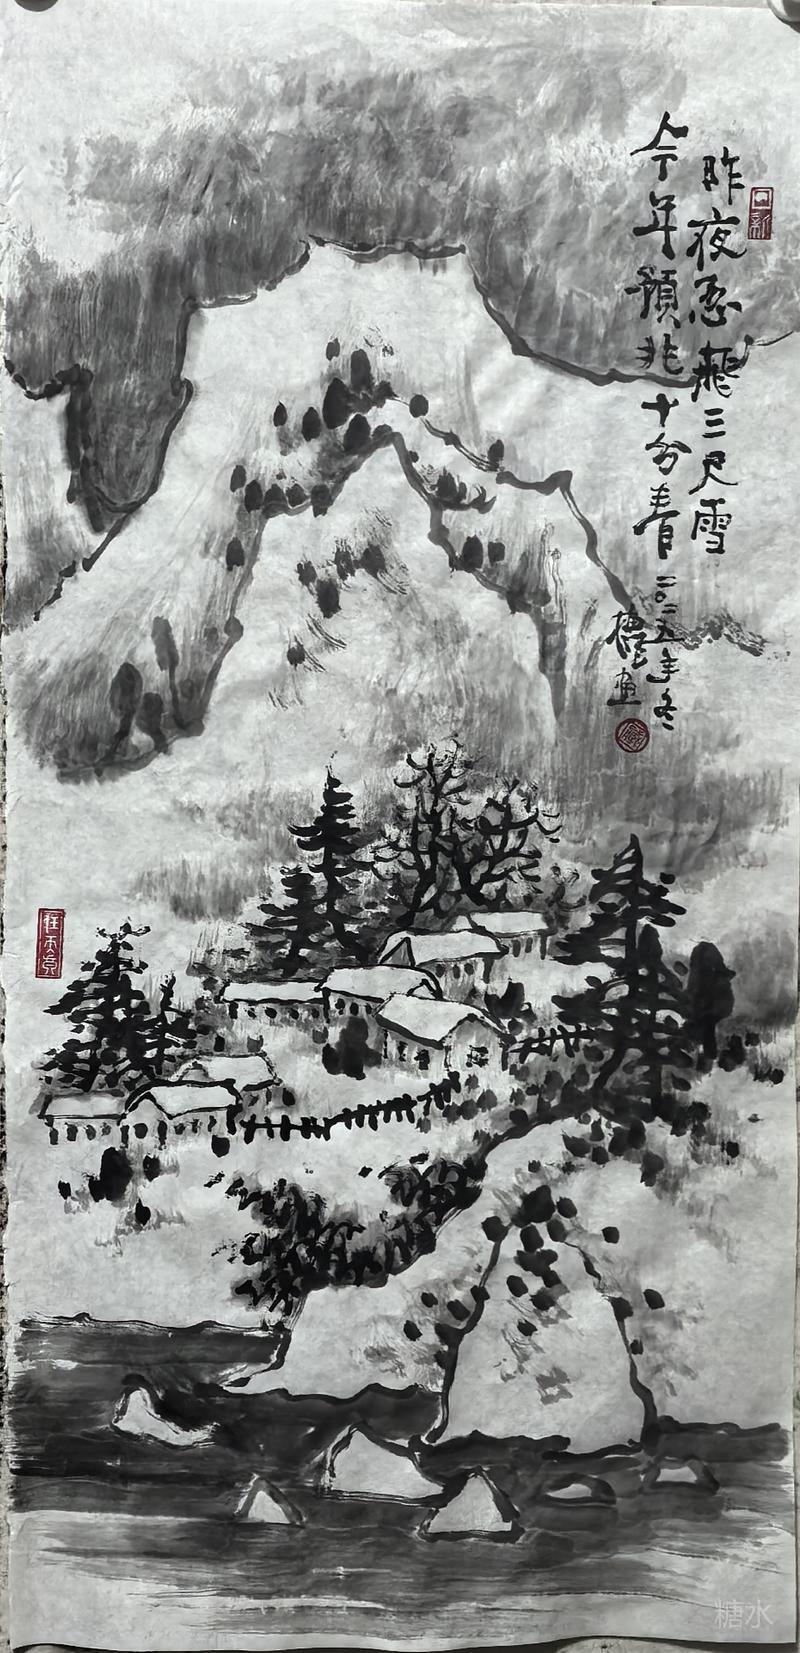 日新
昨夜忽飛三尺雪
今年預兆十分春
二〇二五年冬
画
糖水